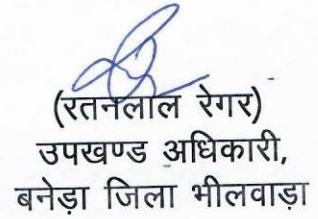 (रतनलाल रेगर)
उपखण्ड अधिकारी,
बनेड़ा जिला भीलवाड़ा